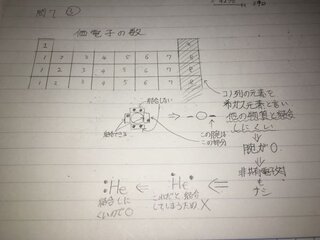 問て ③
価電子の数
1
1 2 3 4 5 6 7 8
1 2 3 4 5 6 7 8
1 2 3 4 5 6 7 8
結合しない
結合できる
⇒ -O-
この腕は
この部分
コノ列の元素を
希ガス元素と言い
他の物質と結合
しにくい
⇓
腕が0
⇓
非共有電子対
も
ナシ
:He ⇐ He: ⇐
これだと結合
してしまうため X
結合しに
くいので〇